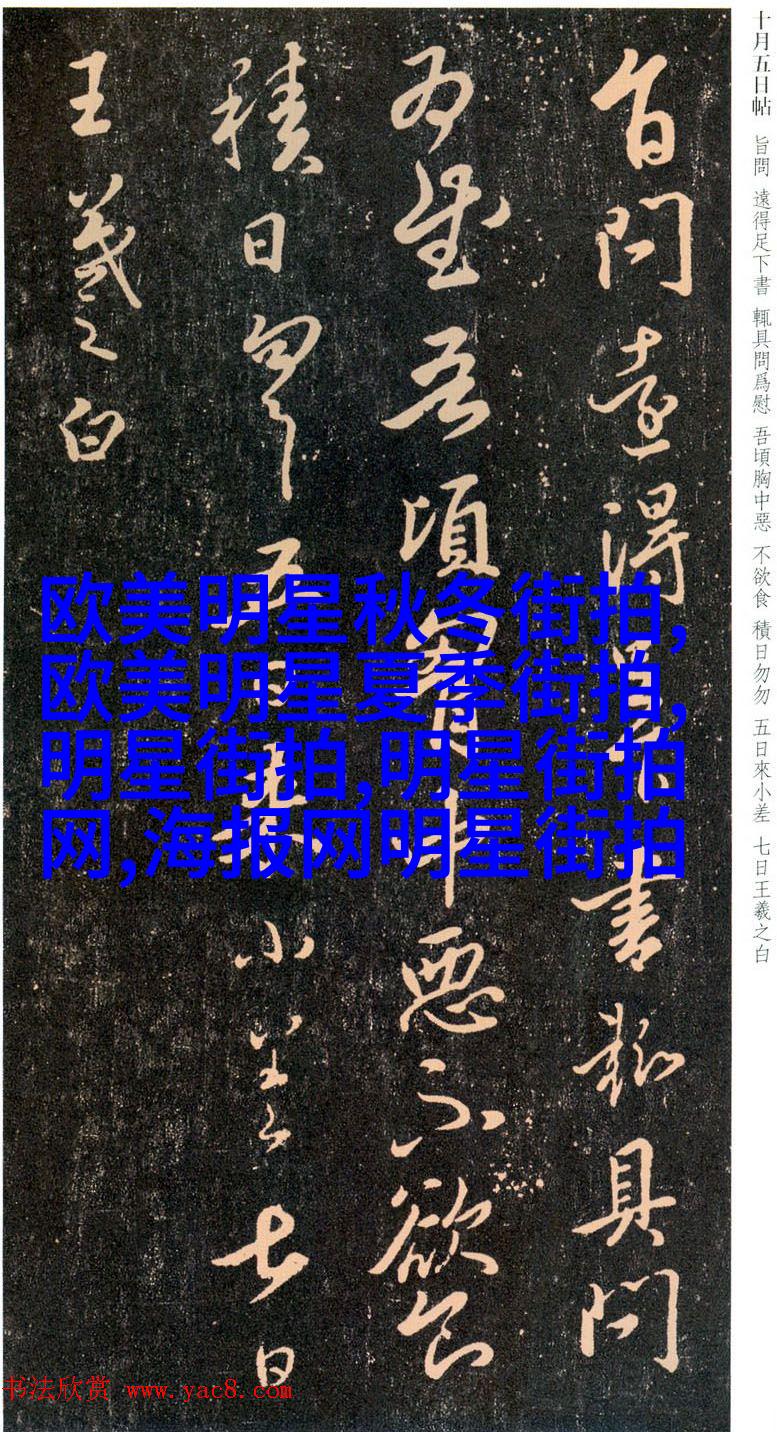 十月五日帖 旨問 遠得足下書 輒具問爲慰 吾頃胸中惡 不欲食 積日勿勿 五日來小差 七日王羲之白
旨問遠得足下書輒具問
為慰吾頃胷中惡不欲食
積日勿勿五日來小差七日
王羲之白
欧美明星秋冬街拍,
欧美明星夏季街拍,
明星街拍,明星街拍
网,海报网明星街拍
书法欣赏 www.yac8.com